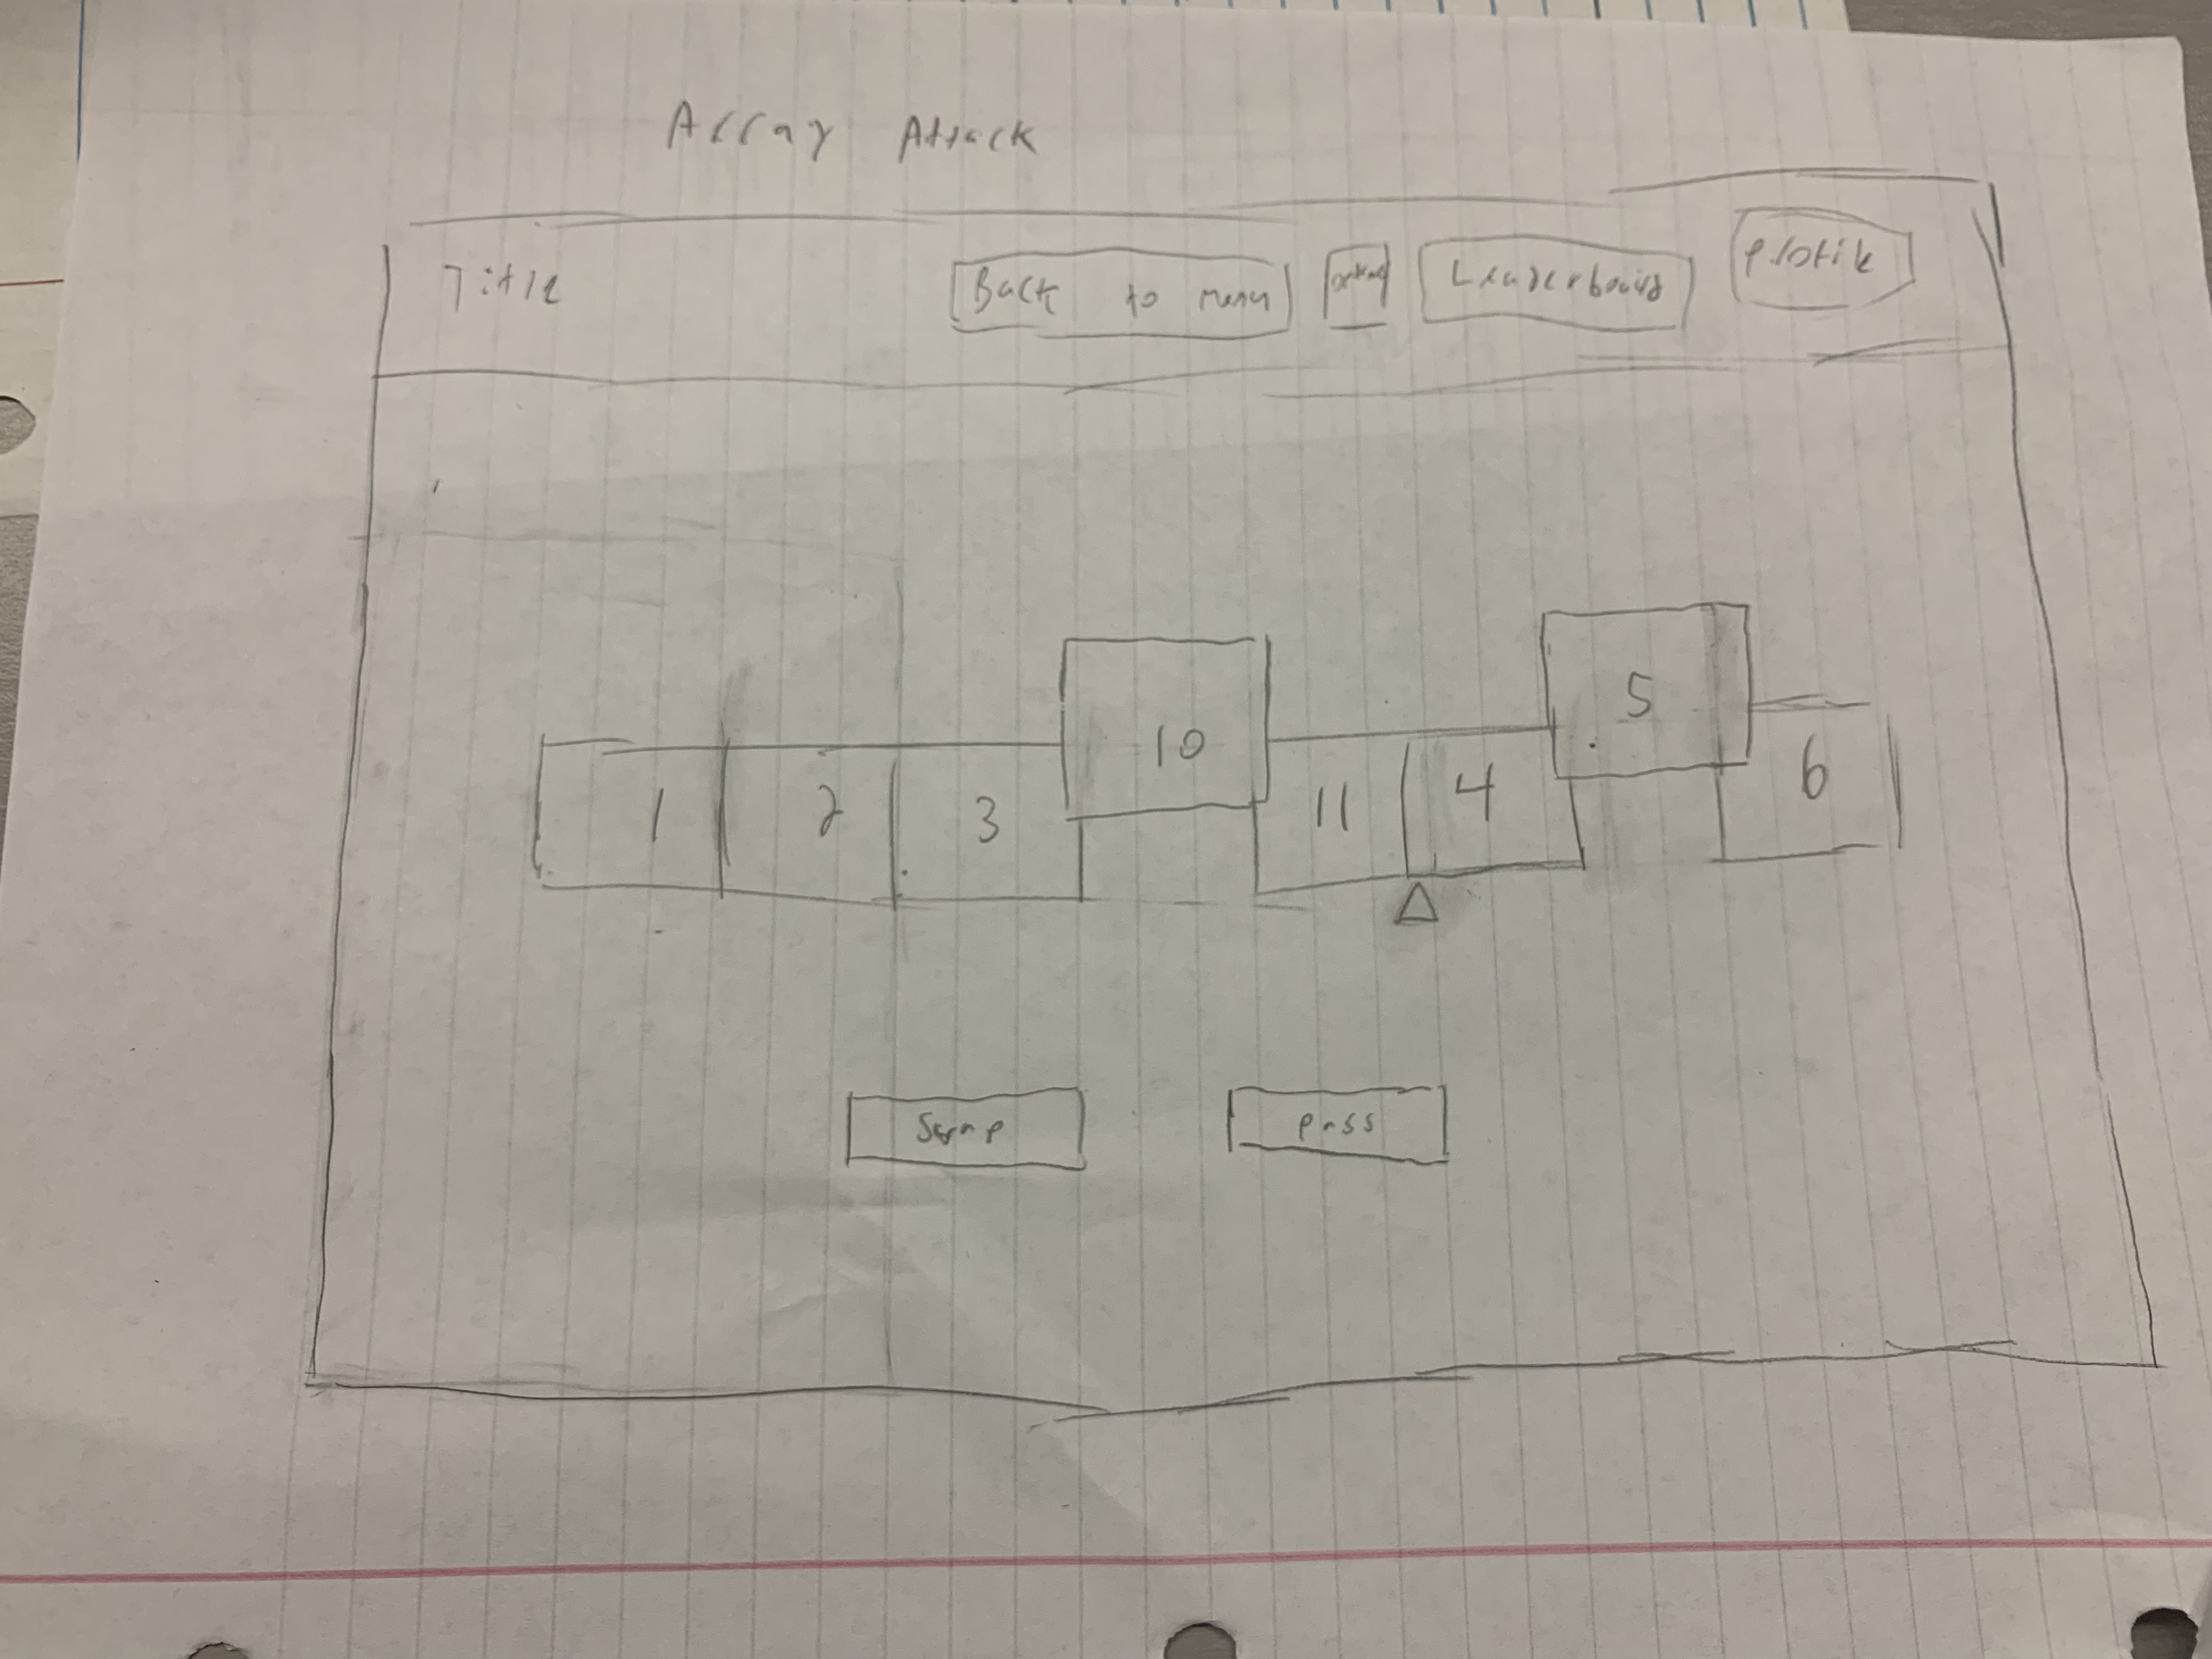 Array Attack
Title Back to menu Leaderboard Profile
1 2 3 10 11 4 5 6
Swap Pass